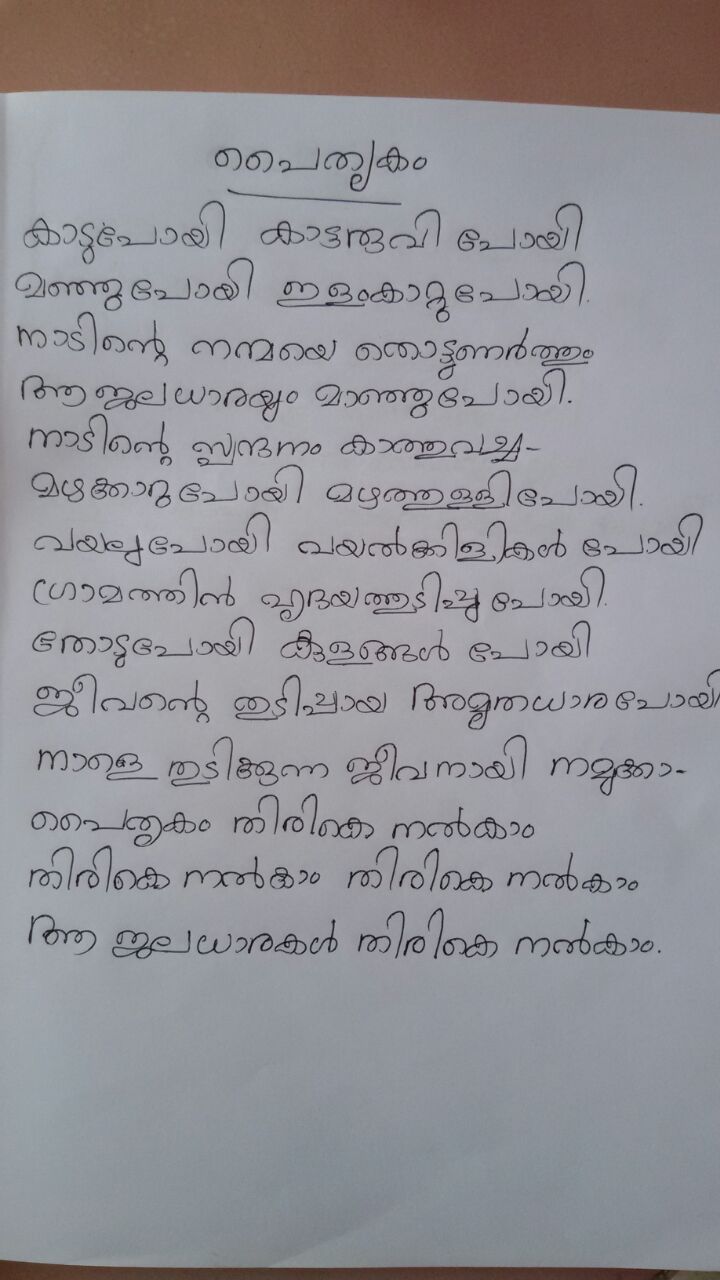 പൈതൃകം
കാടുപോയി കാട്ടരുവി പോയി
മഞ്ഞുപോയി ഇളംകാറ്റുപോയി.
നാടിന്റെ നന്മയെ തൊട്ടുണർത്തും
ആ ജലധാരയും മാഞ്ഞുപോയി.
നാടിന്റെ സ്പന്ദനം കാത്തുവച്ച-
മഴക്കാറുപോയി മഴത്തുള്ളിപോയി.
വയലുപോയി വയൽക്കിളികൾ പോയി
ഗ്രാമത്തിൻ ഹൃദയത്തുടിപ്പു പോയി.
തോടുപോയി കുളങ്ങൾ പോയി
ജീവന്റെ തുടിപ്പായ അമൃതധാര പോയി
നാളെ തുടിക്കുന്ന ജീവനായി നമുക്കാ-
പൈതൃകം തിരികെ നൽകാം
തിരികെ നൽകാം തിരികെ നൽകാം
ആ ജലധാരകൾ തിരികെ നൽകാം.